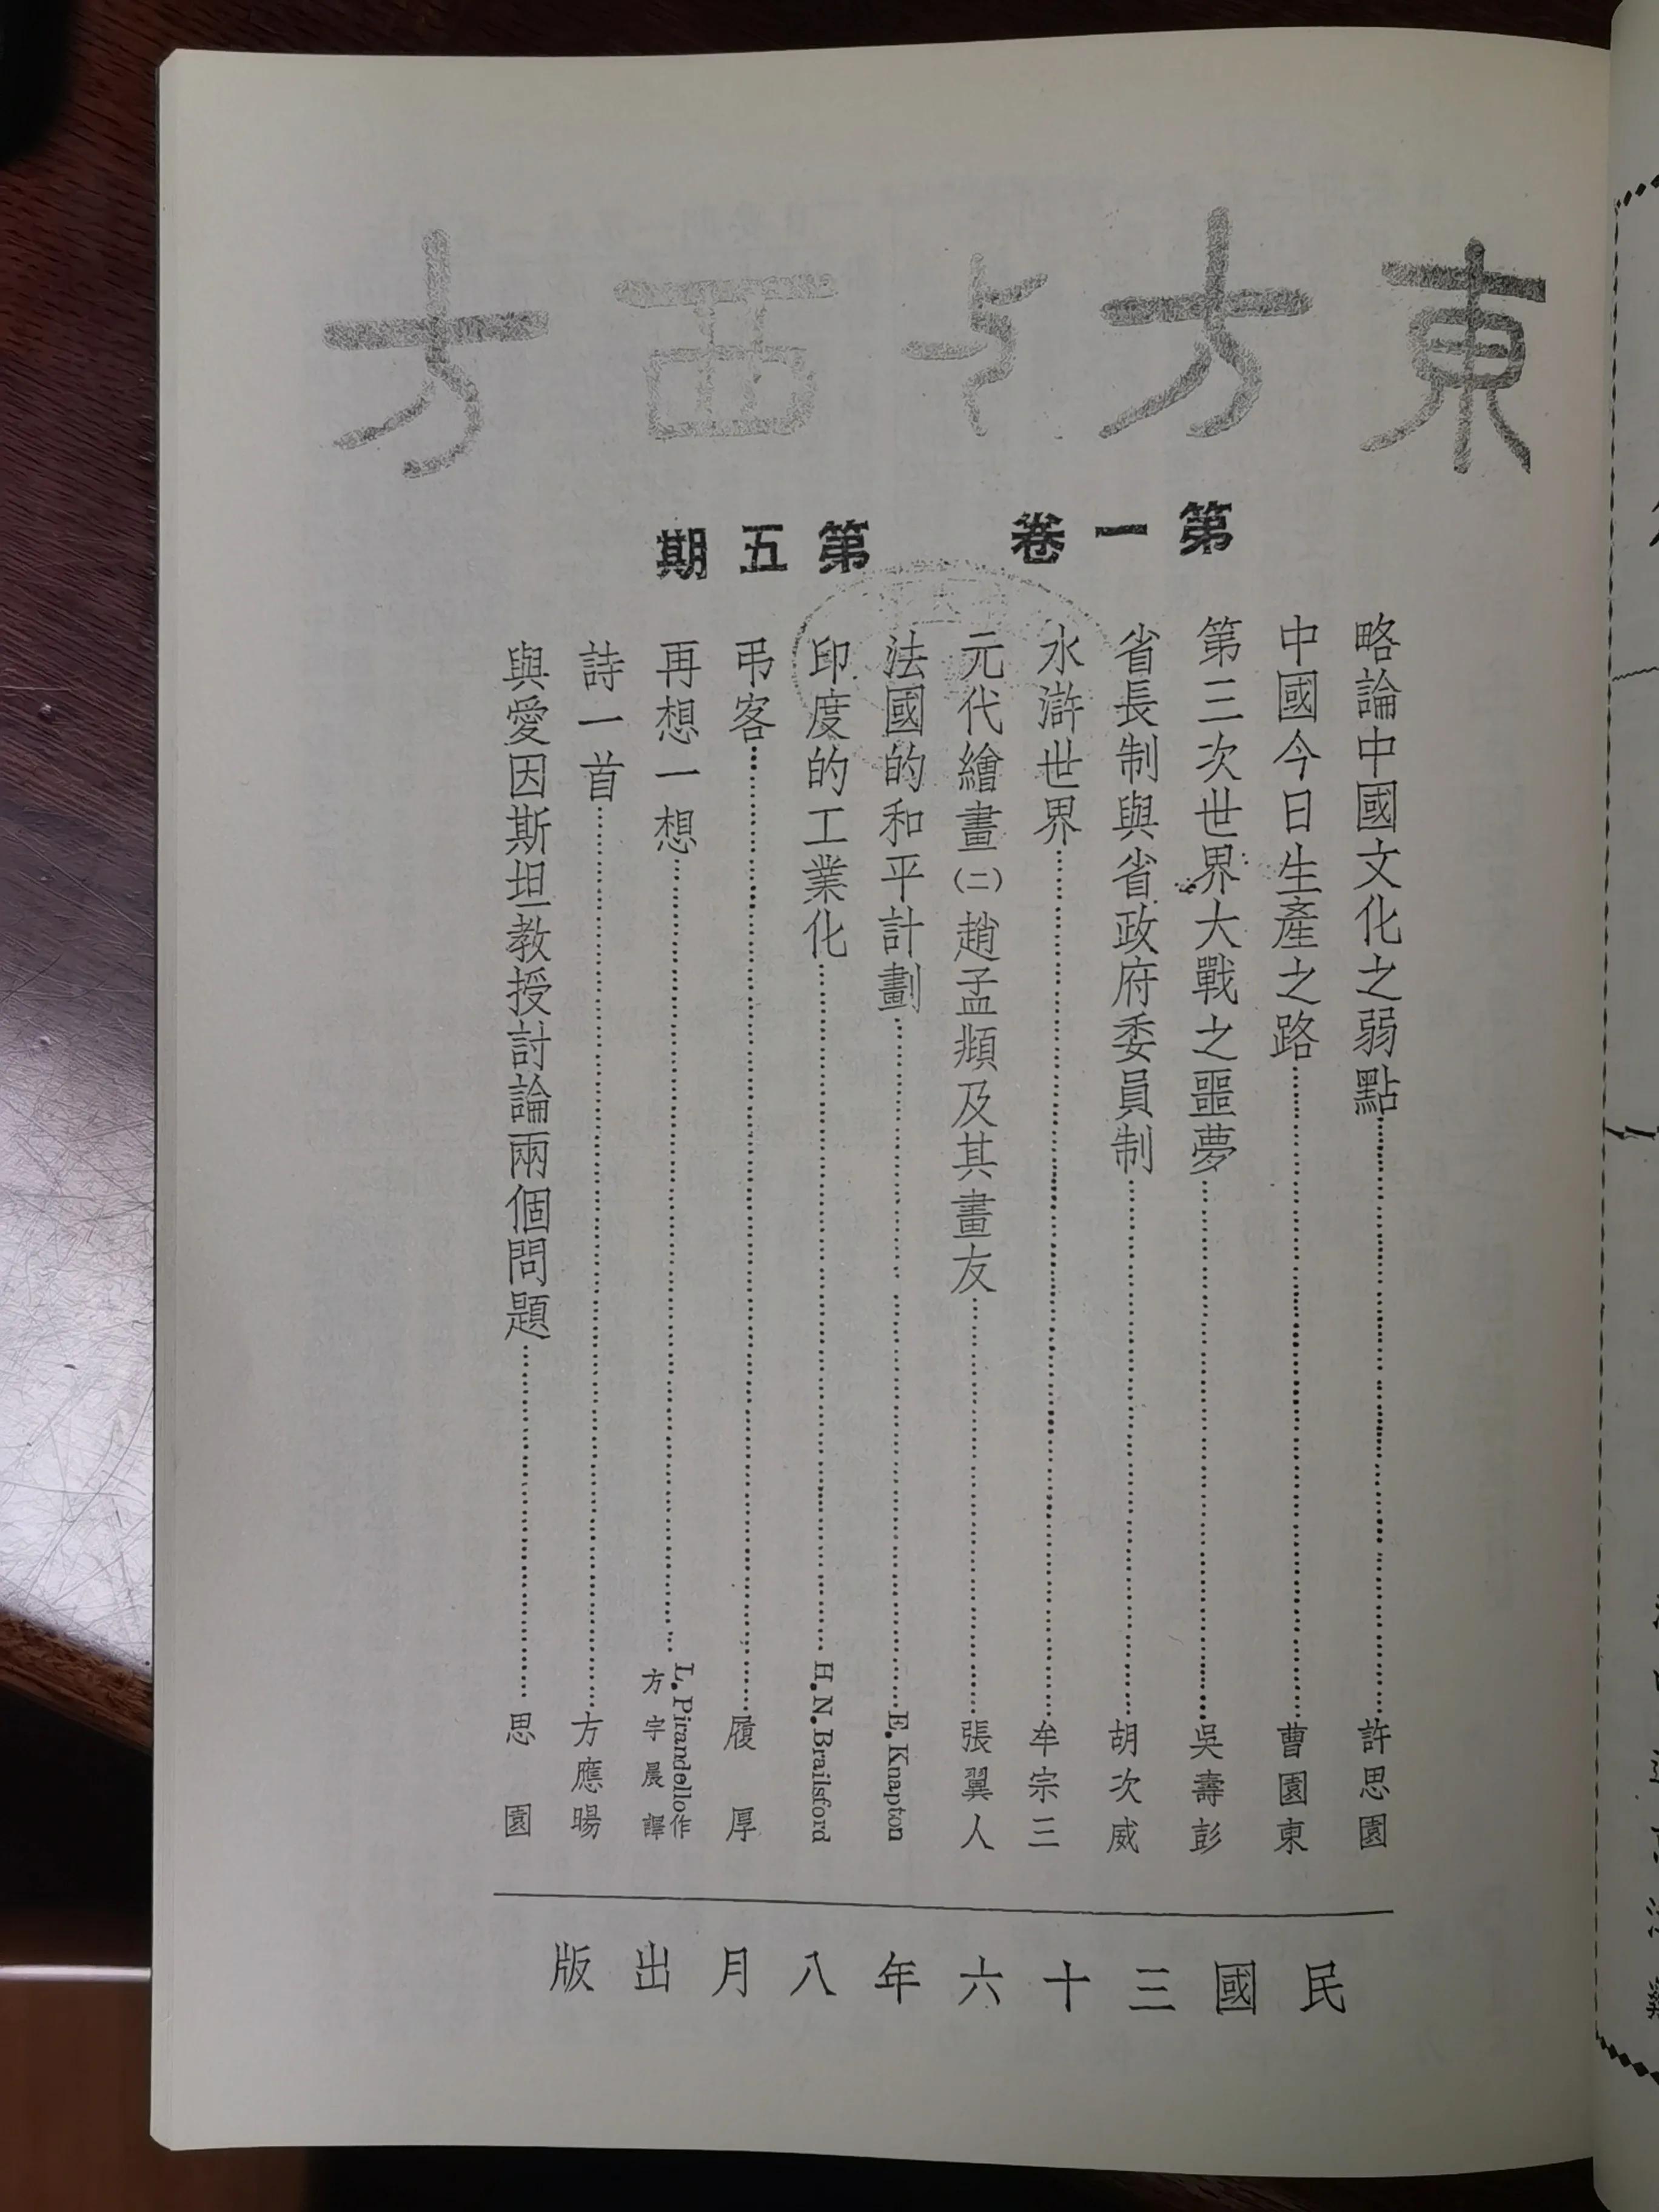 東方与西方
第一卷 第五期
略論中國文化之弱點……許思園
中國今日生產之路……曹園東
第三次世界大戰之噩夢……吳壽彭
省長制與省政府委員制……胡次威
水滸世界……牟宗三
元代繪畫(二)趙孟頫及其畫友……張翼人
法國的和平計劃……E. Knapton
印度的工業化……H. N. Brailsford
弔客……履厚
再想一想……L. Pirandello作
方宇晨譯
詩一首……方應暘
與愛因斯坦教授討論兩個問題……思園
民國三十六年八月出版